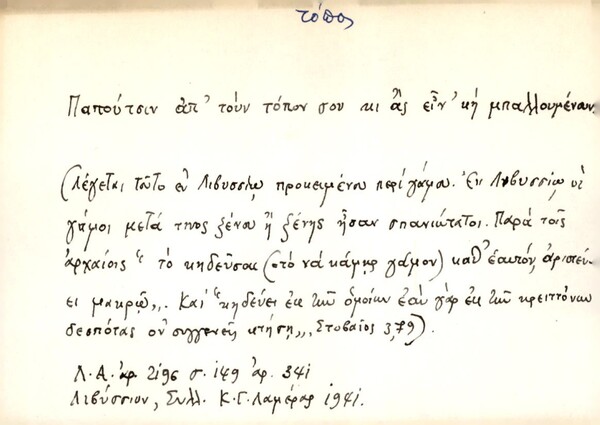 τόπος
Παπούτσιν ἀπ' τοὺν τόπον σου κι ἂς εἶν' κὴ μπαλλουμένουν
(Λέγεται τοῦτο ἐν Λιβυσσίῳ προκειμένου περὶ γάμου. Ἐν Λιβυσσίῳ οἱ
γάμοι μετά τινος ξένου ἢ ξένης ἦσαν σπανιώτατοι. Παρὰ τοῖς
ἀρχαίοις " τὸ κηδεῦσαι (= τὸ νὰ κάμῃς γάμον) καθ' ἑαυτόν, ἀριστεύ-
ει μακρῷ,,. Καὶ "κηδεύει ἐκ τῶν ὁμοίων ἐὰν γὰρ ἐκ τῶν κρειττόνων
δεσπότας οὐ συγγενεῖς κτήσῃ,,, Στοβαῖος 3,79).
Λ.Α. ἀρ. 2196 σ. 149 ἀρ. 341
Λιβύσσιον, Συλλ. Κ. Γ. Λαμέρας 1941.